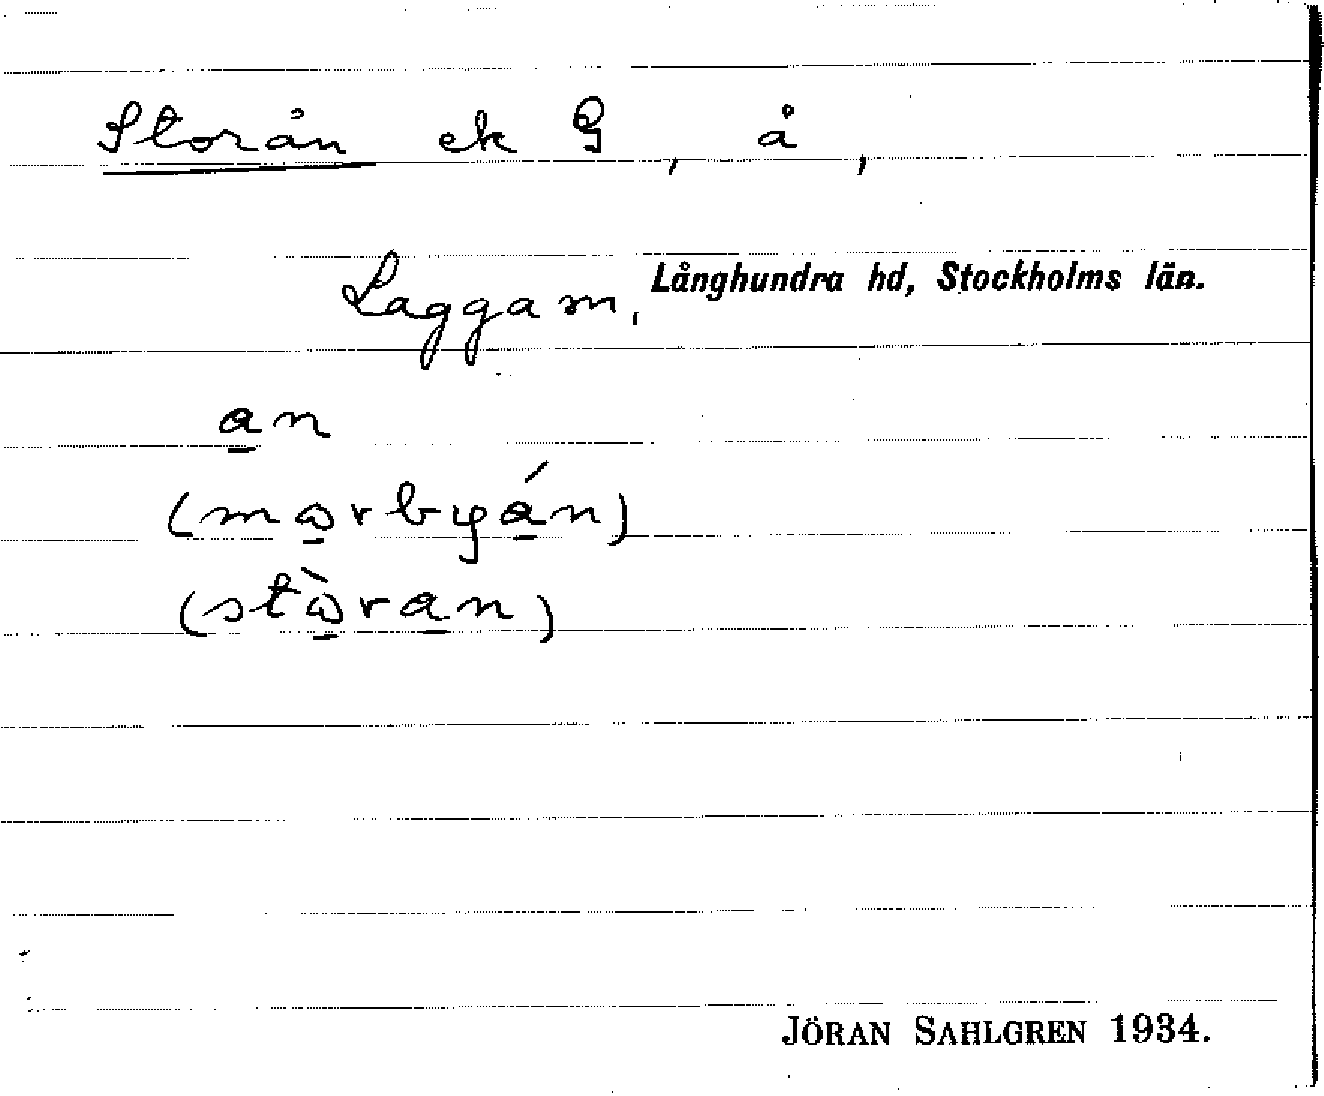 Storån ek G, å,
Laggam, Långhundra hd, Stockholms län.
a̲n
(mω̲rbyá̲n)
(stὼ̲ra̲n)
JÖRAN SAHLGREN 1934.